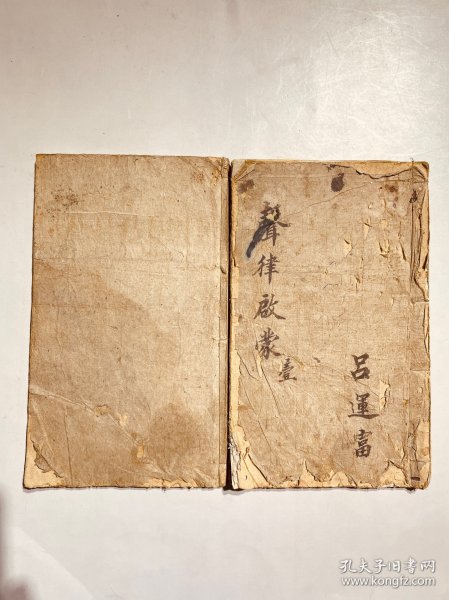 聲律啟蒙
壹
呂運富
孔夫子旧书网
www.kongfz.com